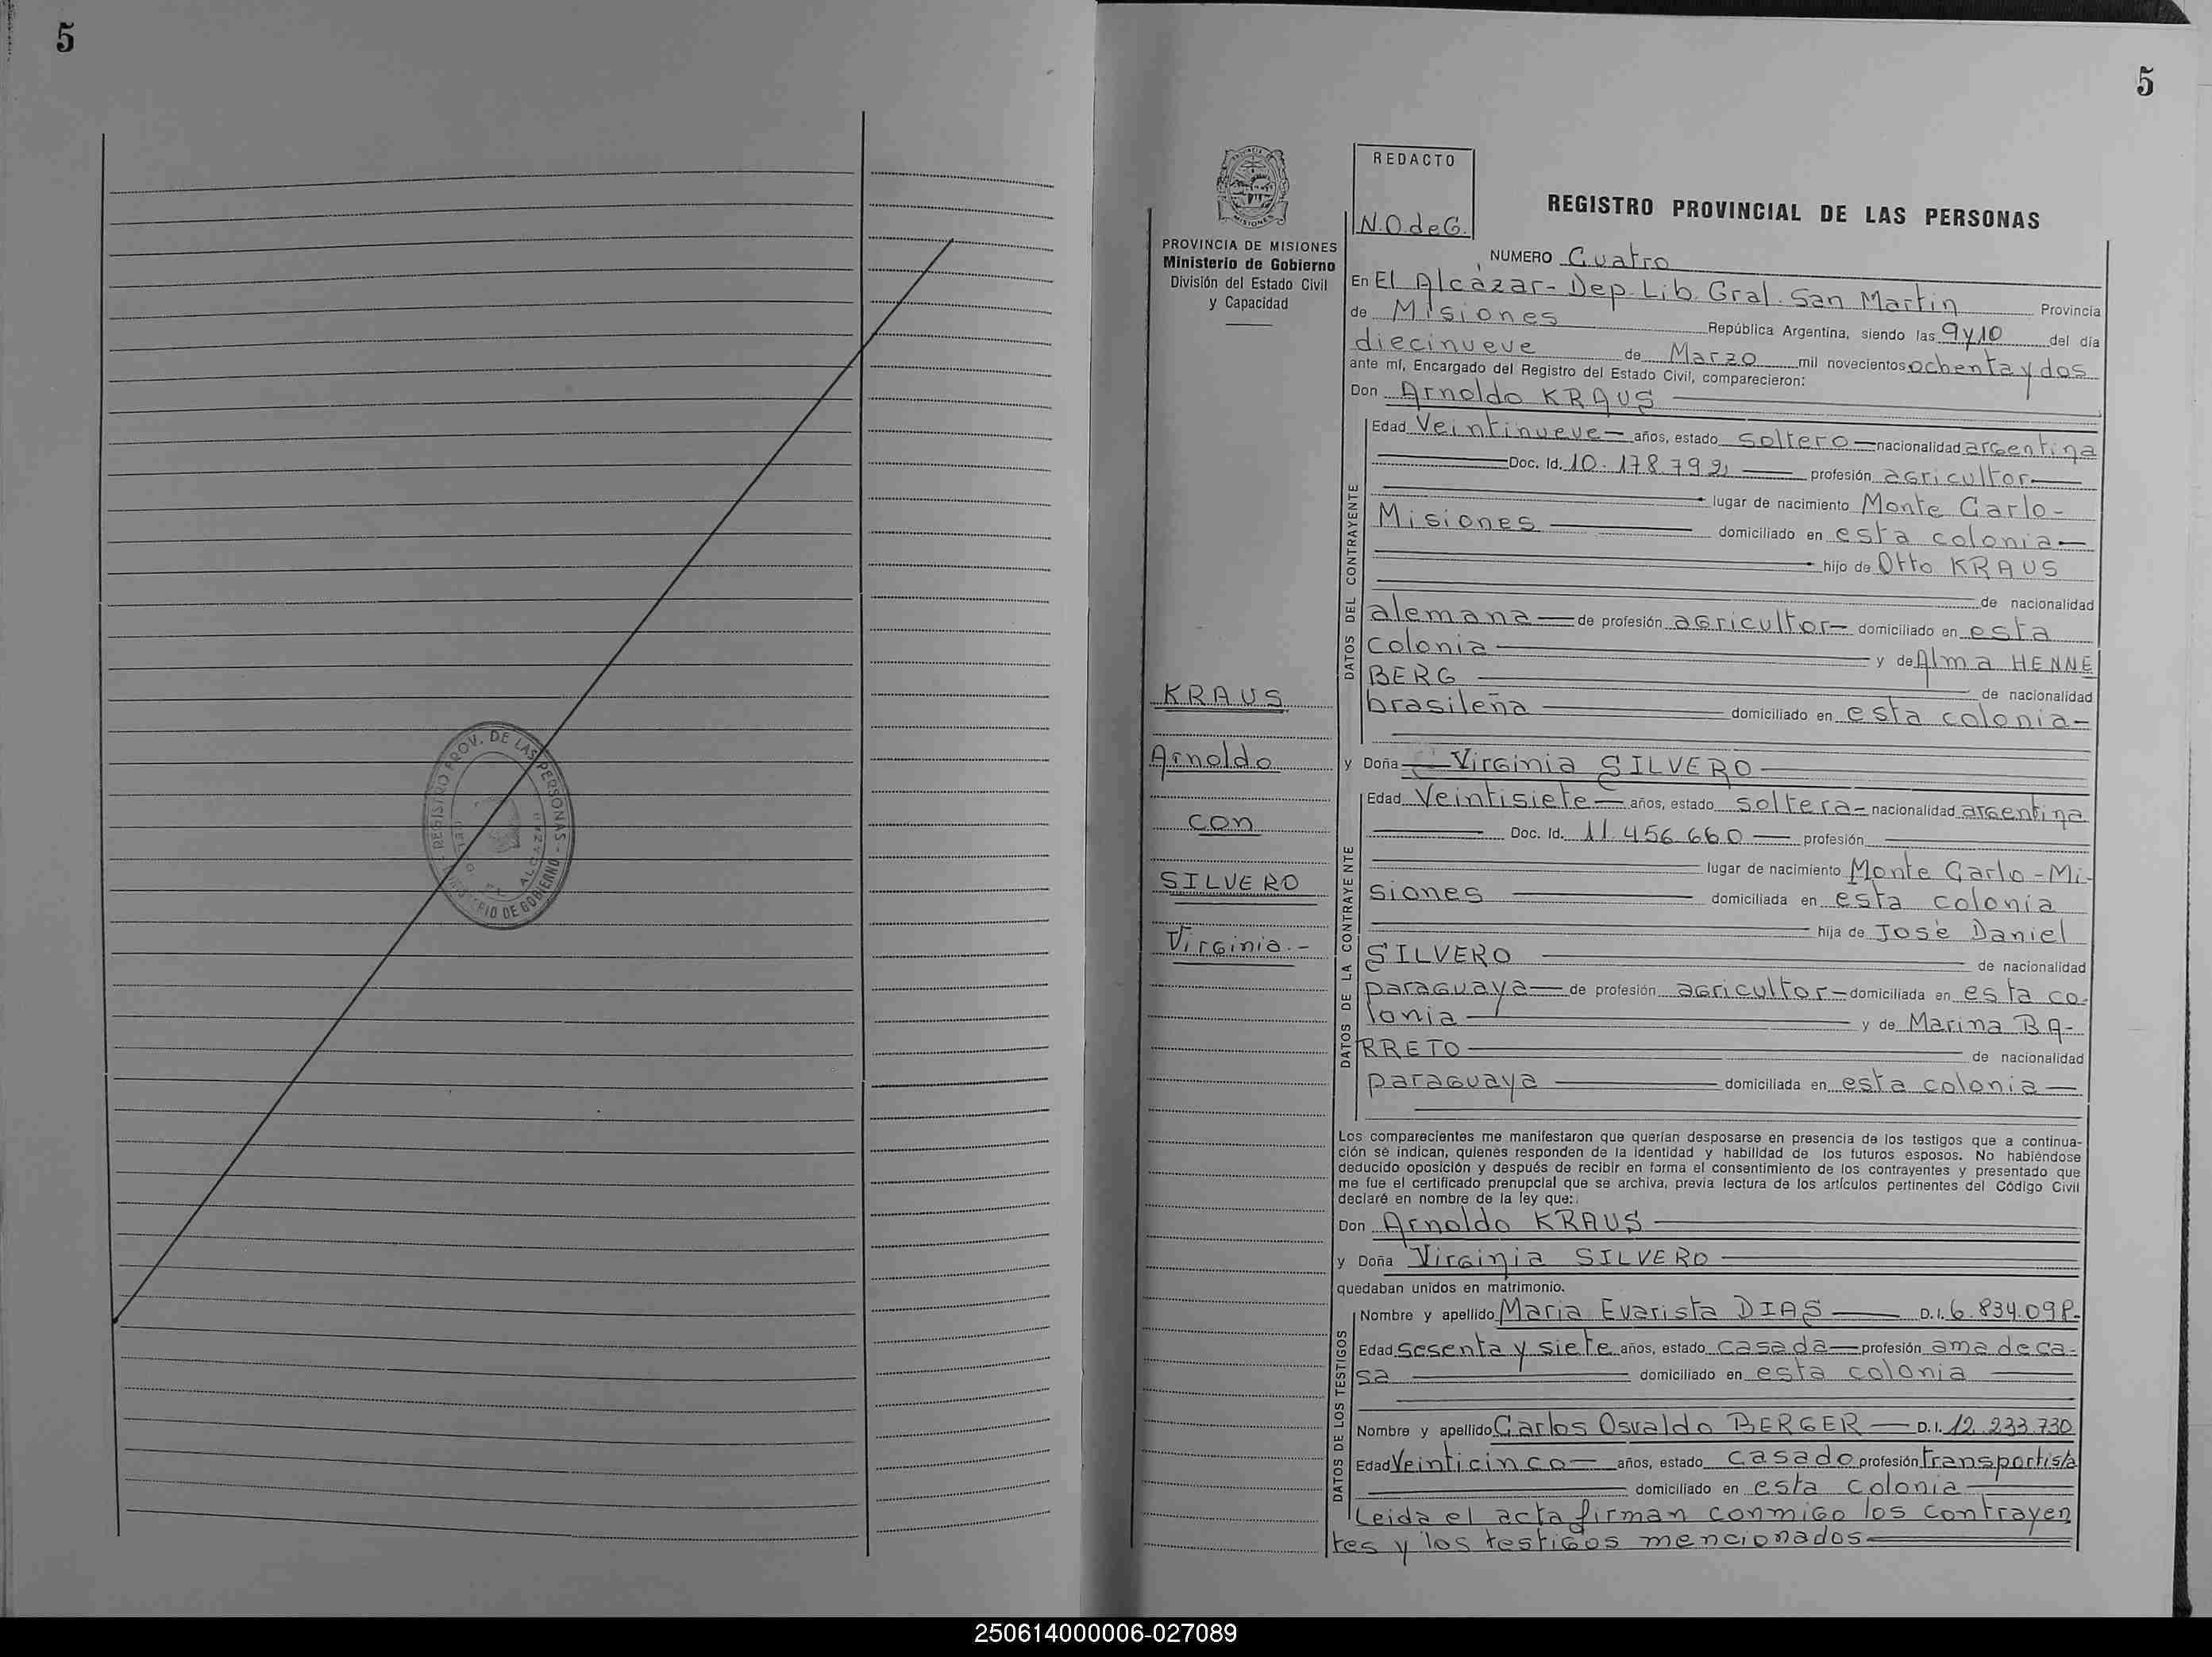 5
REGISTRO PROV. DE LAS PERSONAS
DE GOBIERNO
5
PROVINCIA DE MISIONES
Ministerio de Gobierno
División del Estado Civil
y Capacidad
REDACTO
N.O.deG.
REGISTRO PROVINCIAL DE LAS PERSONAS
NUMERO Cuatro
En El Alcázar- Dep. Lib. Gral. San Martin Provincia
de Misiones República Argentina, siendo las 9 y 10 del día
diecinueve de Marzo mil novecientos ochenta y dos
ante mí, Encargado del Registro del Estado Civil, comparecieron:
Don Arnoldo KRAUS
DATOS DEL CONTRAYENTE
Edad Veintinueve años, estado soltero nacionalidad argentina
Doc. Id. 10.178.792 profesión agricultor
lugar de nacimiento Monte Carlo-
Misiones domiciliado en esta colonia
hijo de Otto KRAUS
de nacionalidad
alemana de profesión agricultor domiciliado en esta
colonia y de Alma HENNE
BERG de nacionalidad
brasileña domiciliado en esta colonia-
KRAUS
Arnoldo
con
SILVERO
Virginia.-
y Doña Virginia SILVERO
DATOS DE LA CONTRAYENTE
Edad Veintisiete años, estado soltera- nacionalidad argentina
Doc. Id. 11.456.660 profesión
lugar de nacimiento Monte Carlo-Mi-
siones domiciliada en esta colonia
hija de José Daniel
SILVERO de nacionalidad
paraguaya de profesión agricultor domiciliada en esta co-
lonia y de Marina BA-
RRETO de nacionalidad
paraguaya domiciliada en esta colonia
Los comparecientes me manifestaron que querían desposarse en presencia de los testigos que a continua-
ción se indican, quienes responden de la identidad y habilidad de los futuros esposos. No habiéndose
deducido oposición y después de recibir en forma el consentimiento de los contrayentes y presentado que
me fue el certificado prenupcial que se archiva, previa lectura de los artículos pertinentes del Código Civil
declaré en nombre de la ley que:
Don Arnoldo KRAUS
y Doña Virginia SILVERO
quedaban unidos en matrimonio.
DATOS DE LOS TESTIGOS
Nombre y apellido Maria Evarista DIAS D.I. 6.834.098-
Edad Sesenta y siete años, estado casada profesión ama de ca-
sa domiciliado en esta colonia
Nombre y apellido Carlos Osvaldo BERGER D.I. 12.233.730
Edad Veinticinco años, estado casado profesión transportista
domiciliado en esta colonia
Leida el acta firman conmigo los contrayen
tes y los testigos mencionados
250614000006-027089